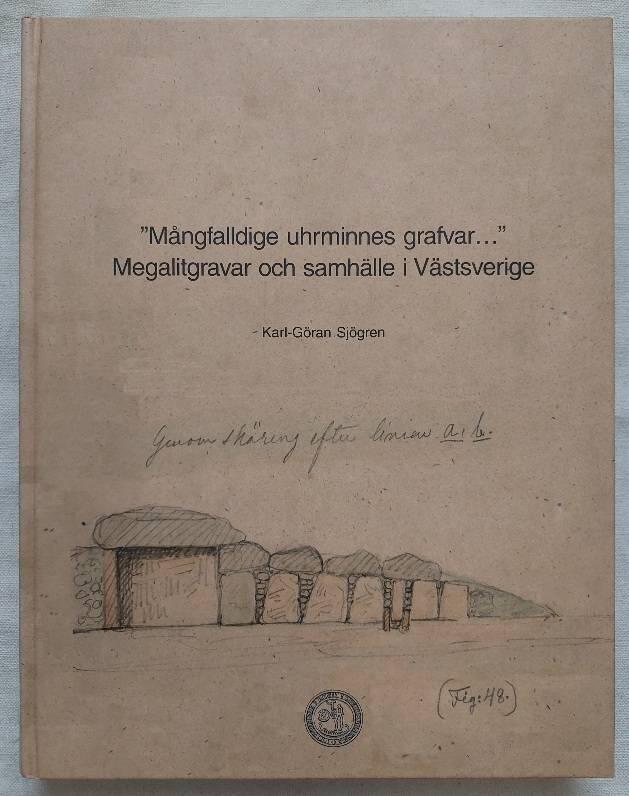 ”Mångfalldige uhrminnes grafvar...”
Megalitgravar och samhälle i Västsverige
Karl-Göran Sjögren
Genomskäring efter linien a, b.
(Fig: 48.)